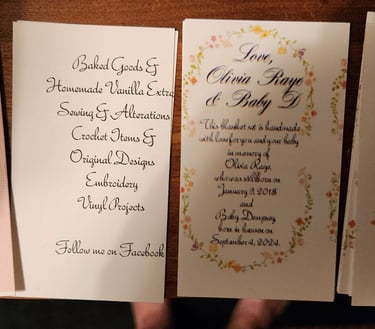 Baked Goods &
Homemade Vanilla Extra
Sewing & Alterations
Crochet Items &
Original Designs
Embroidery
Vinyl Projects
Follow me on Facebook
Love,
Olivia Raye
& Baby D
This blanket set is handmade
with love for you and your baby
in memory of
Olivia Raye,
who was stillborn on
January 9, 2018
and
Baby Dempsey,
born in heaven on
September 4, 2024.